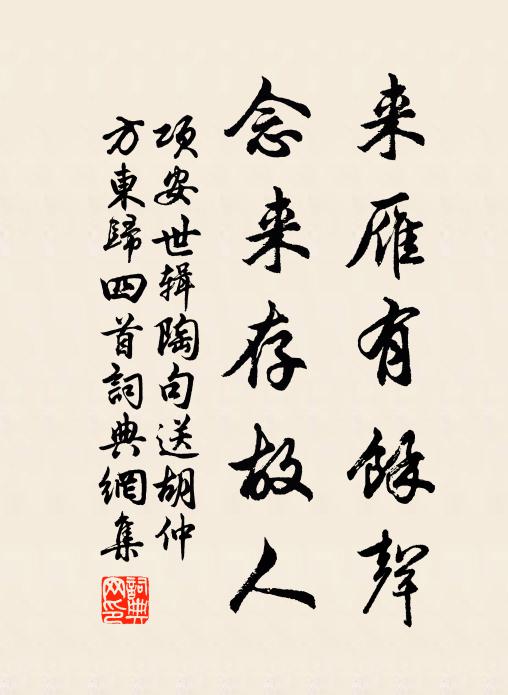 来雁有餘聲
念来存故人
项安世辑陶句送胡仲
方東歸四首詞典網集
詞典网印